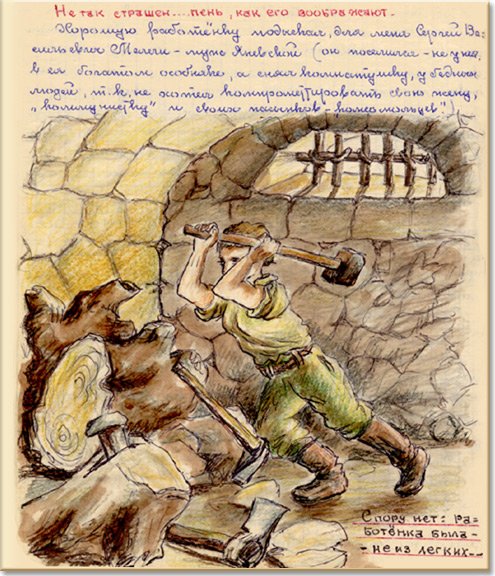 Не так страшен....пень, как его воображают.
Хорошую работёнку подыскал, для меня Сергей Ва=
сильевич Мелеги - муж Яневской (он поселился - не у нея,
в ея богатом особняке, а снял комнатушку, у бедных
людей, т.к. не хотел компрометировать свою жену,
„коммунистку" и своих пасынков - комсомольцев!)
Спору нет: ра=
ботёнка была -
- не из легких--